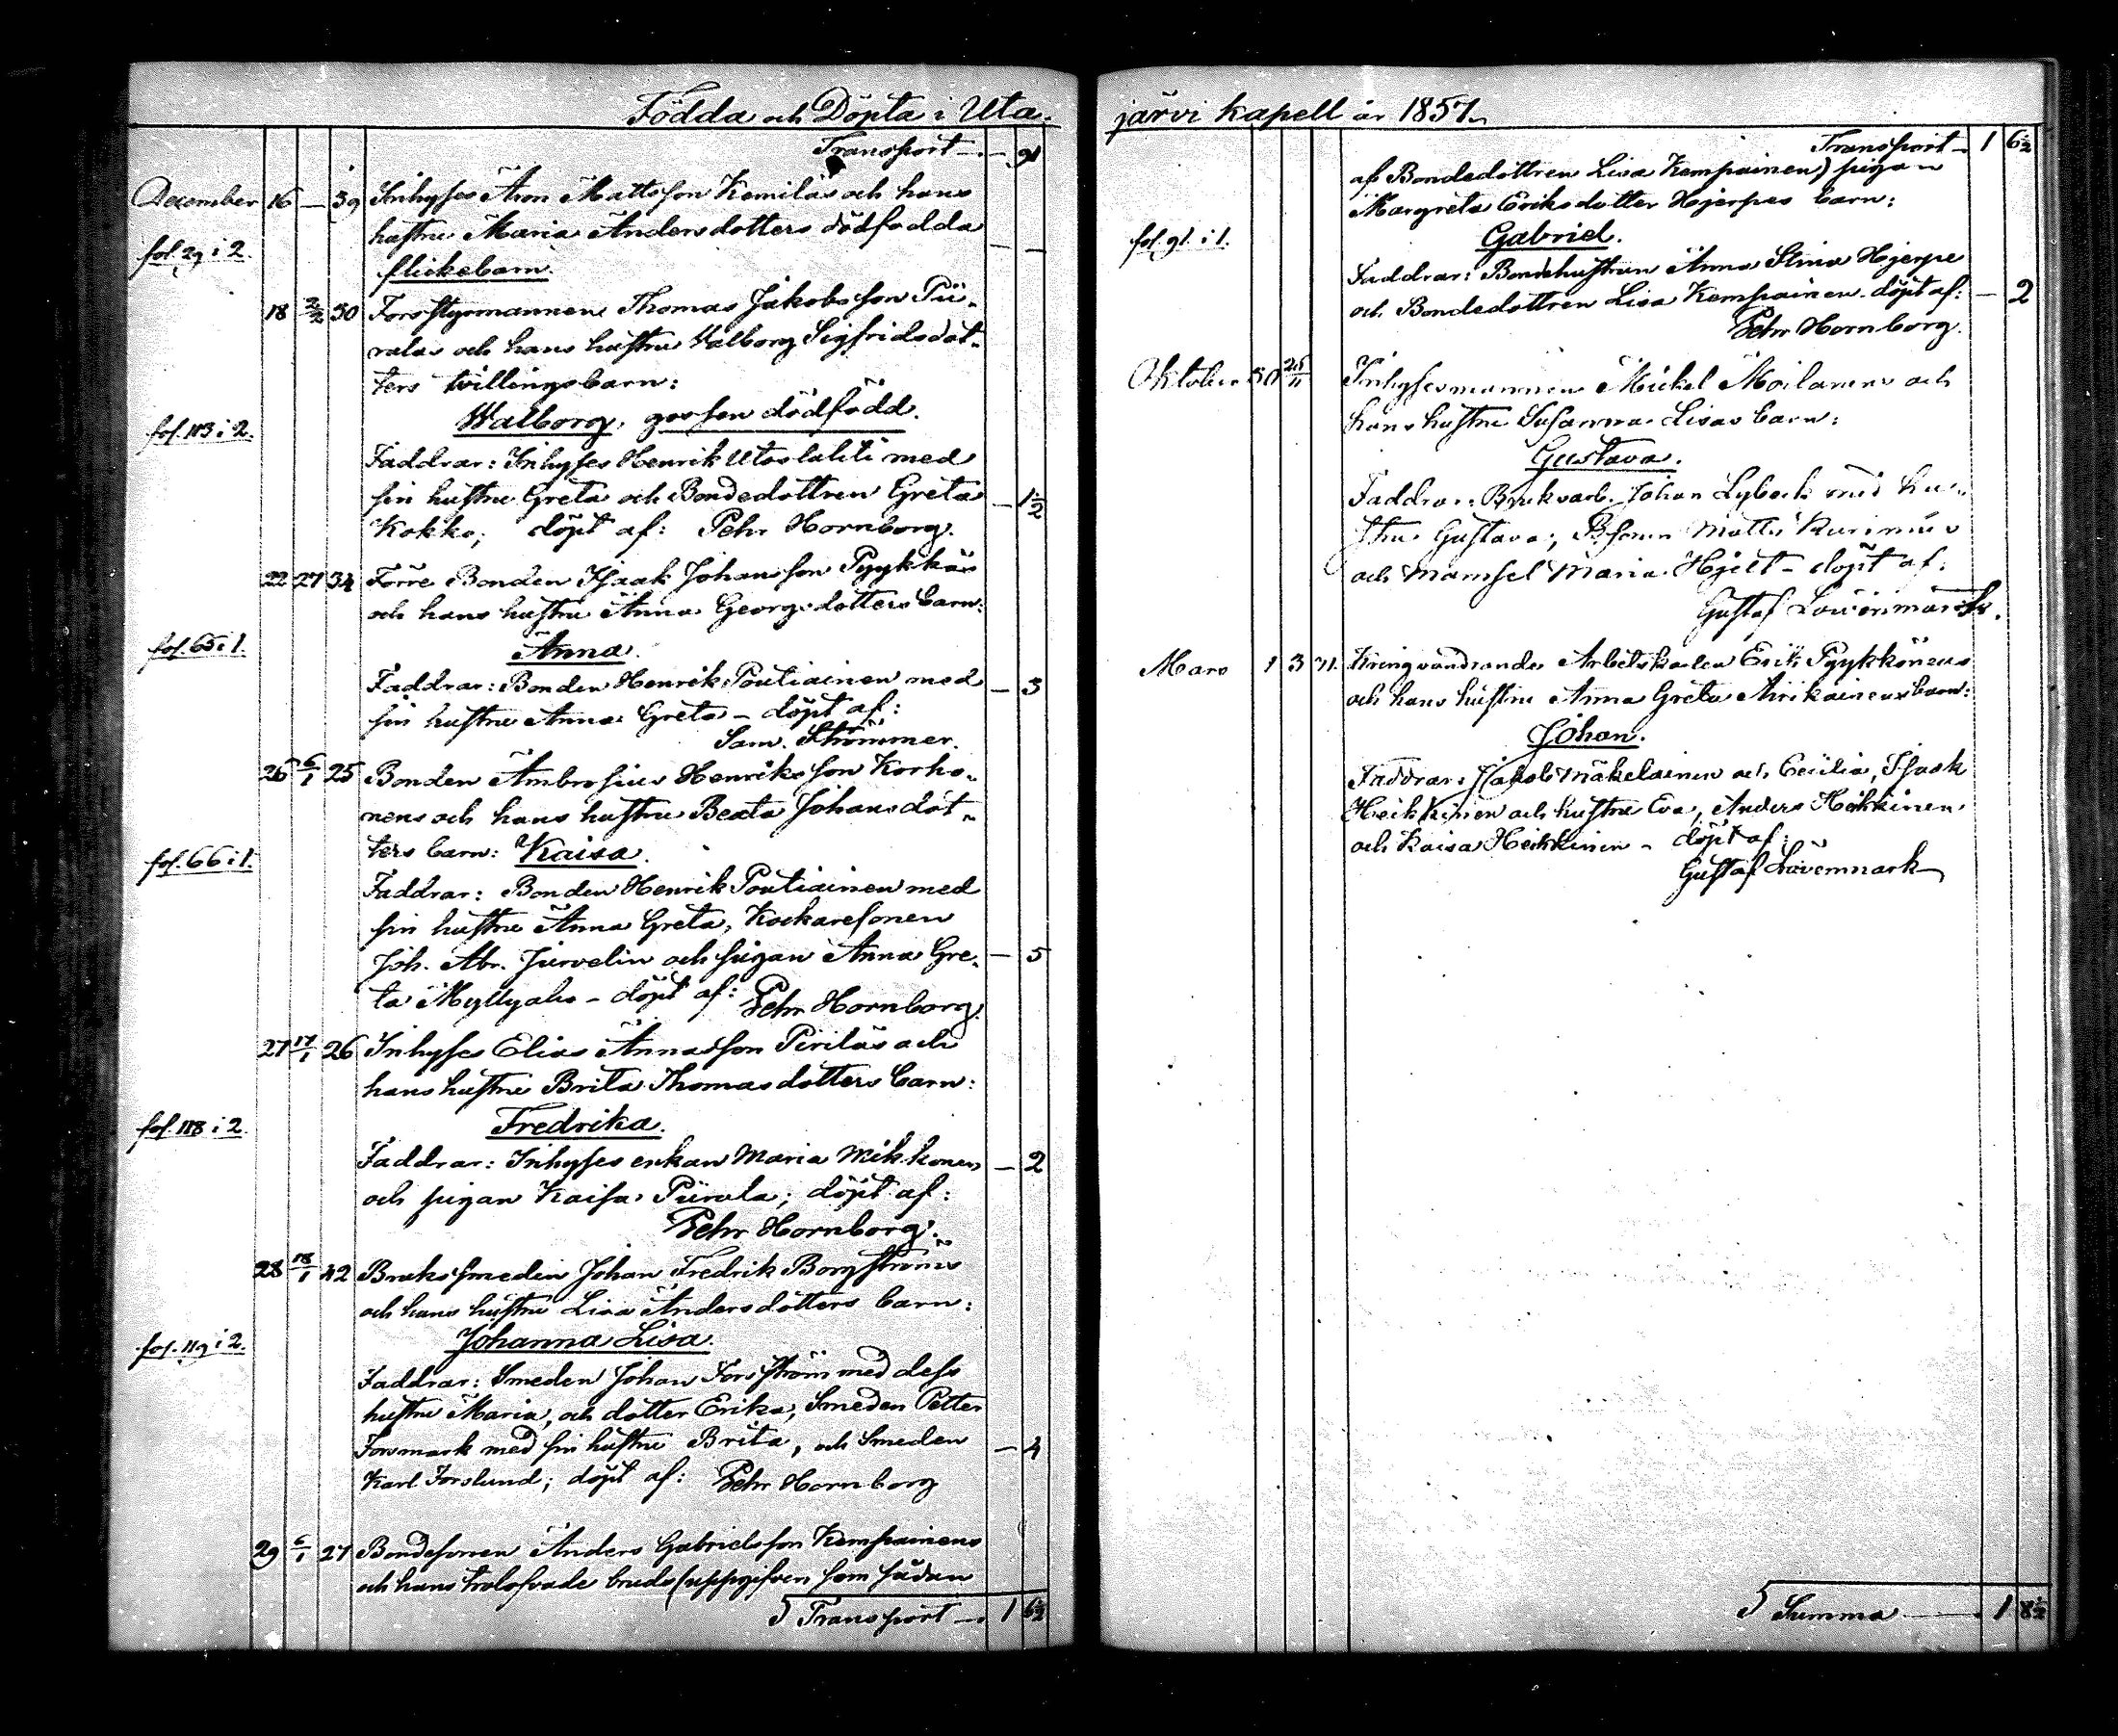 Födda och Döpta i Uta-
Transport — 91
December 16 — 39 Inhyses Aron Mattsson Kemiläs och hans
hustru Maria Andersdotters dödfödda
fol. 29 i 2.
flickebarn.
18 2/2 30 Forsstyrmannen Thomas Jakobsson Pii-
ralas och hans hustru Walborg Sigfridsdot-
ters tvillingsbarn:
Walborg, gossen dödfödd.
fol. 113 i 2.
Faddrar: Inhyses Henrik Utoslahti med
sin hustru Greta och Bondedottren Greta — 1 1/2
Kokko; döpt af: Pehr Hornborg.
22 27 34 Förre Bonden Isaak Johansson Pyykkäs
och hans hustru Anna Georgsdotters barn:
fol. 65 i 1.
Anna.
Faddrar: Bonden Henrik Poutiainen med — 3
sin hustru Anna Greta – döpt af:
Sam. Strömmer.
26 6/1 25 Bonden Ambrosius Henriksson Korho-
nens och hans hustru Beata Johansdot-
ters barn: Kaisa.
fol. 66 i 1.
Faddrar: Bonden Henrik Poutiainen med
sin hustru Anna Greta, Kockaresonen
Joh. Abr. Jurvelin och pigan Anna Gre- — 5
ta Myllyaho – döpt af: Pehr Hornborg.
27 17/1 26 Inhyses Elias Annasson Piriläs och
hans hustru Brita Thomasdotters barn:
fol. 118 i 2.
Fredrika.
Faddrar: Inhyses enkan Maria Mikkonen — 2
och pigan Kaisa Piirala; döpt af:
Pehr Hornborg.
28 18/1 42 Bruksmeden Johan Fredrik Borgströms
och hans hustru Lisa Andersdotters barn:
fol. 119 i 2.
Johanna Lisa.
Faddrar: Smeden Johan Forsström med dess
hustru Maria, och dotter Erika, Smeden Petter
Forsmark med sin hustru Brita, och Smeden — 4
Karl Forslund; döpt af: Pehr Hornborg
29 6/1 27 Bondesonen Anders Gabrielsson Kempainens
och hans trolofvade bruds (uppgifven som sådan
Transport — 1 6 1/2
järvi kapell år 1857.
Transport — 1 6 1/2
af Bondedottren Lisa Kempainen) pigan
Margreta Eriksdotter Hjerpes barn:
fol. 91 i 1.
Gabriel.
Faddrar: Bondehustrun Anna Stina Hjerpe
och Bondedottren Lisa Kempainen döpt af: — 2
Pehr Hornborg.
Oktober 30 25/11 Inhysesmannen Mickel Moilanens och
hans hustru Susanna Lisas barn:
Gustava.
Faddrar: Bruksarb. Johan Lybeck med hu-
stru Gustava, Matts Kurimus
och Mamsel Maria Hjelt – döpt af:
Gustaf Lövenmark.
Mars 1 3 Kringvandrande Arbetskarlen Erik Pyykkönens
och hans hustru Anna Greta Airikainens barn:
Johan.
Faddrar: Jakob Mäkelainen och Cecilia, Isaak
Heikkinen och hustru Eva, Anders Heikkinen
och Kaisa Heikkinen – döpt af:
Gustaf Lövenmark
Summa — 1 8 1/2